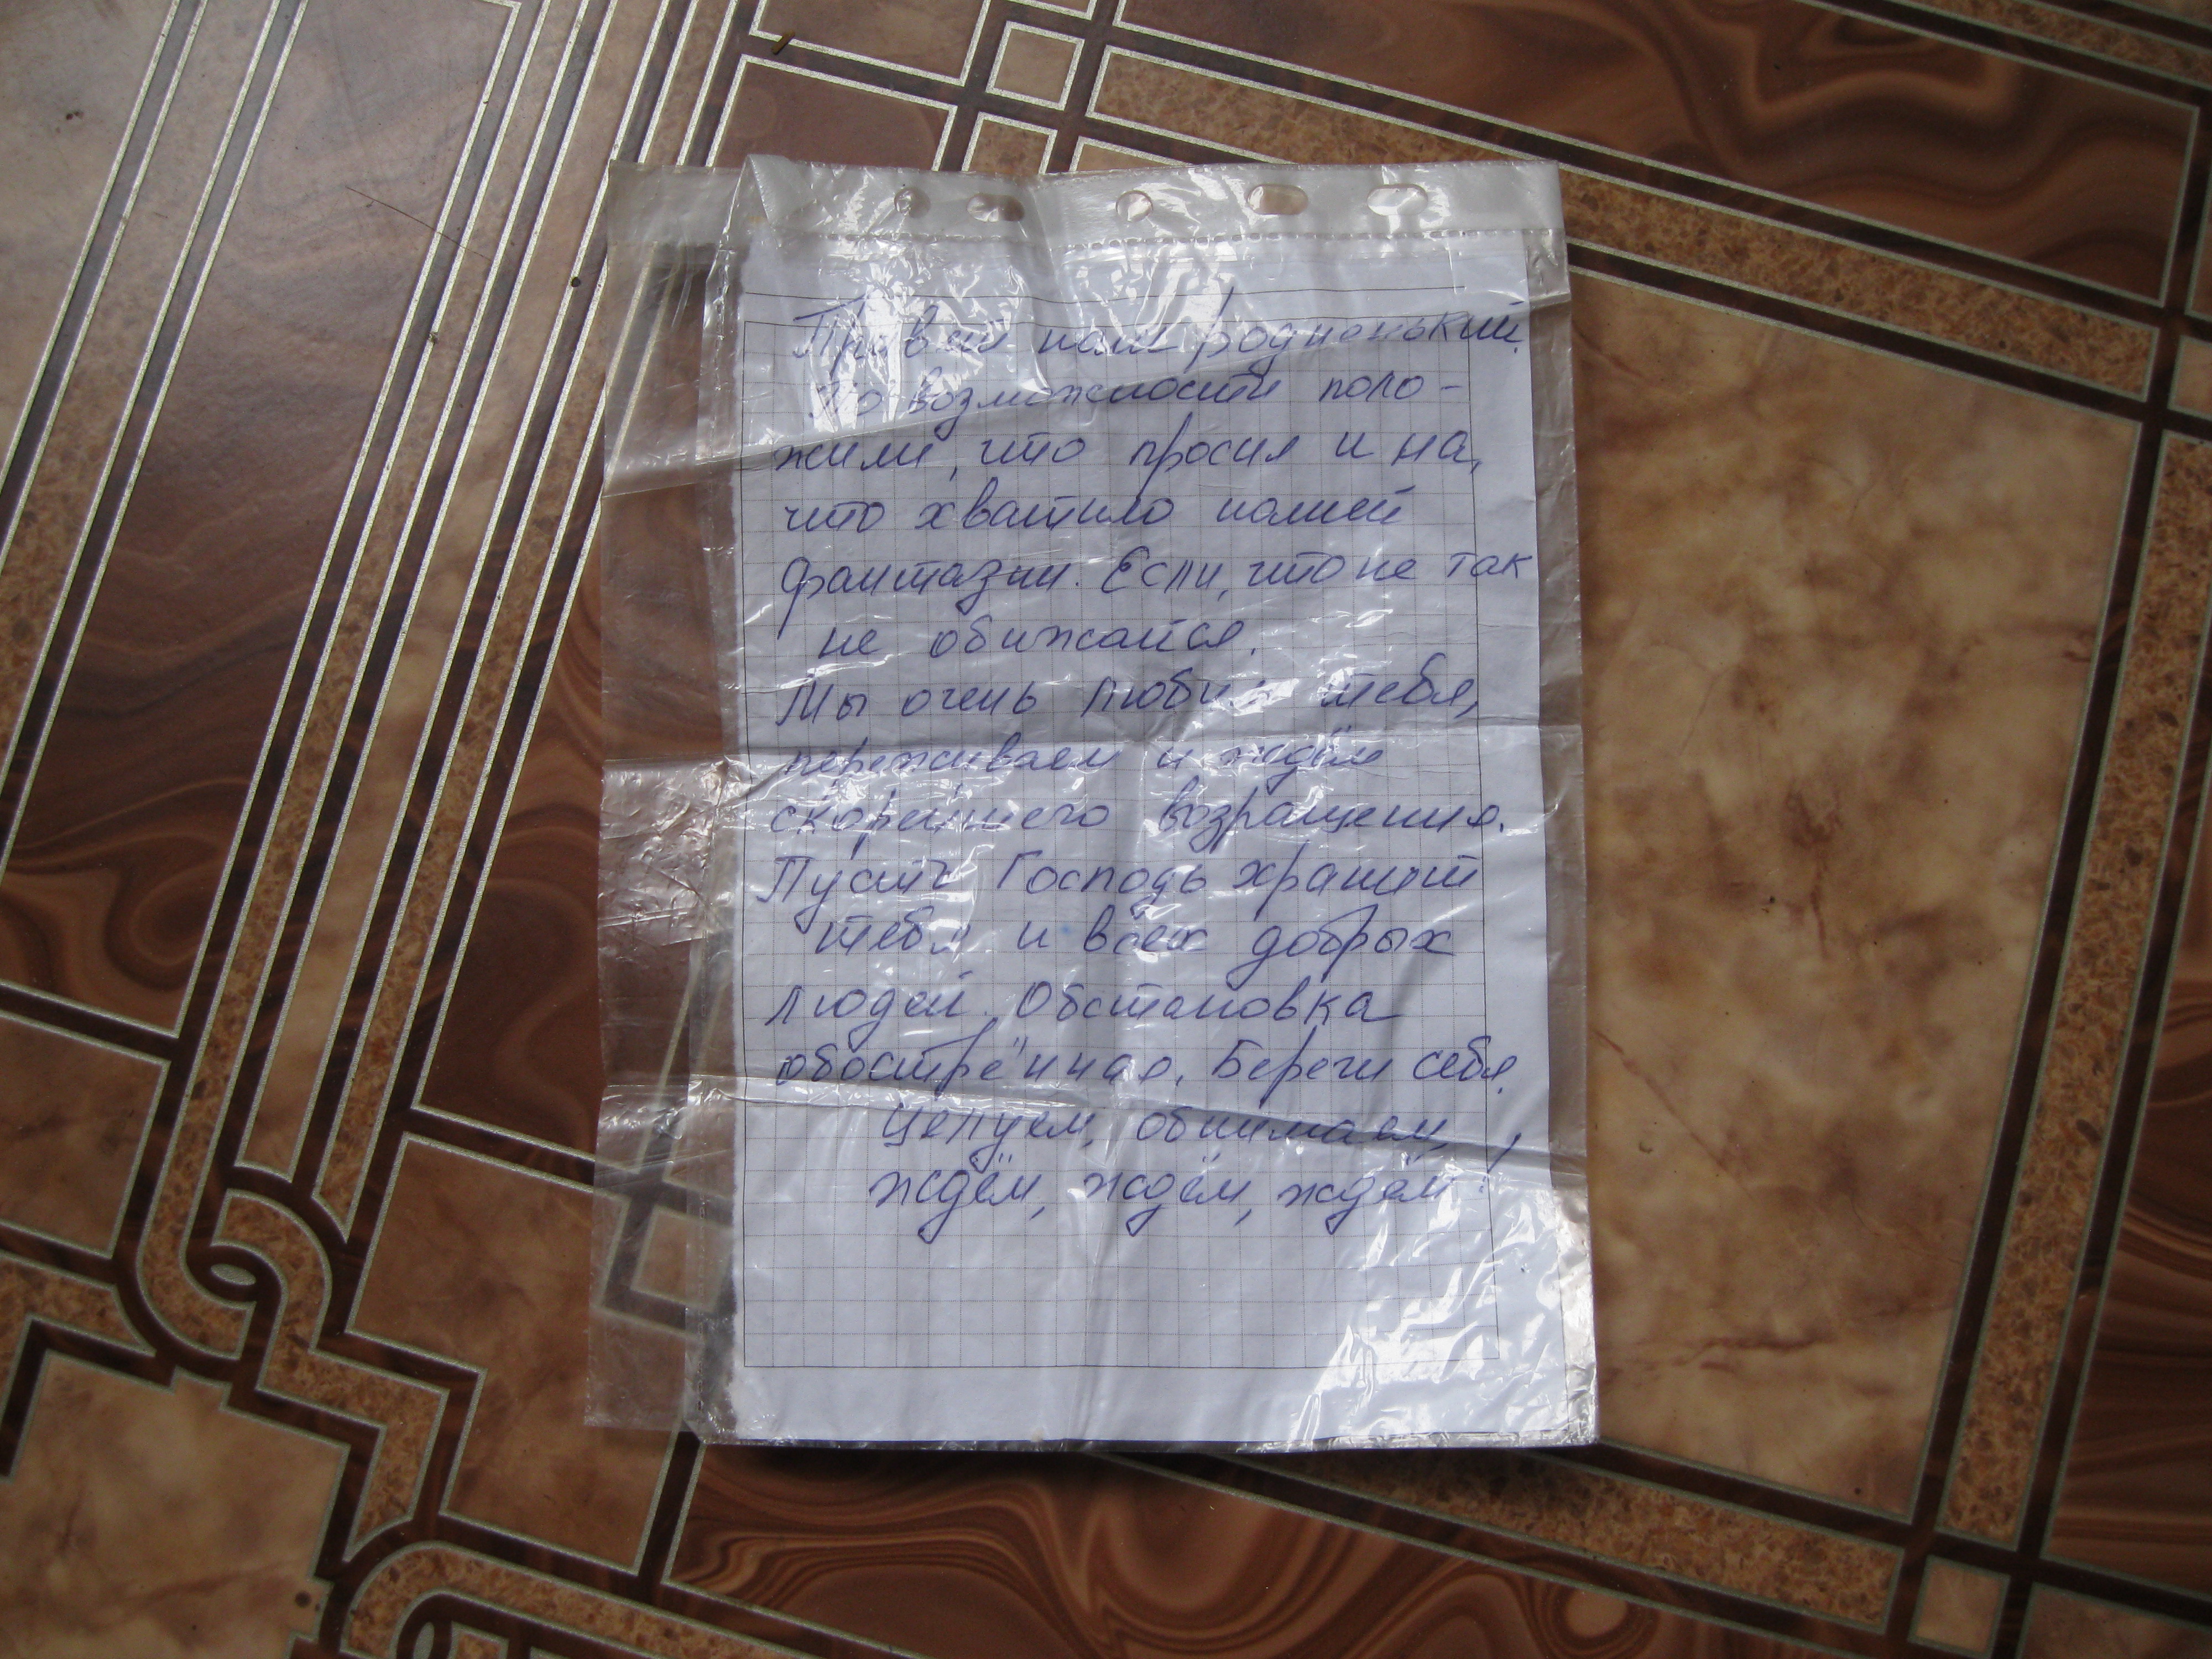 Привет наш родненький.
По возможности поло-
жили, что просил и на,
что хватило нашей
фантазии. Если, что не так
не обижайся.
Мы очень любим тебя,
переживаем и ждём
скорейшего возращения.
Пусть Господь хранит
тебя и всех добрых
людей. Обстановка
обострённая. Береги себя.
Целуем, обнимаем,
ждём, ждём, ждём!